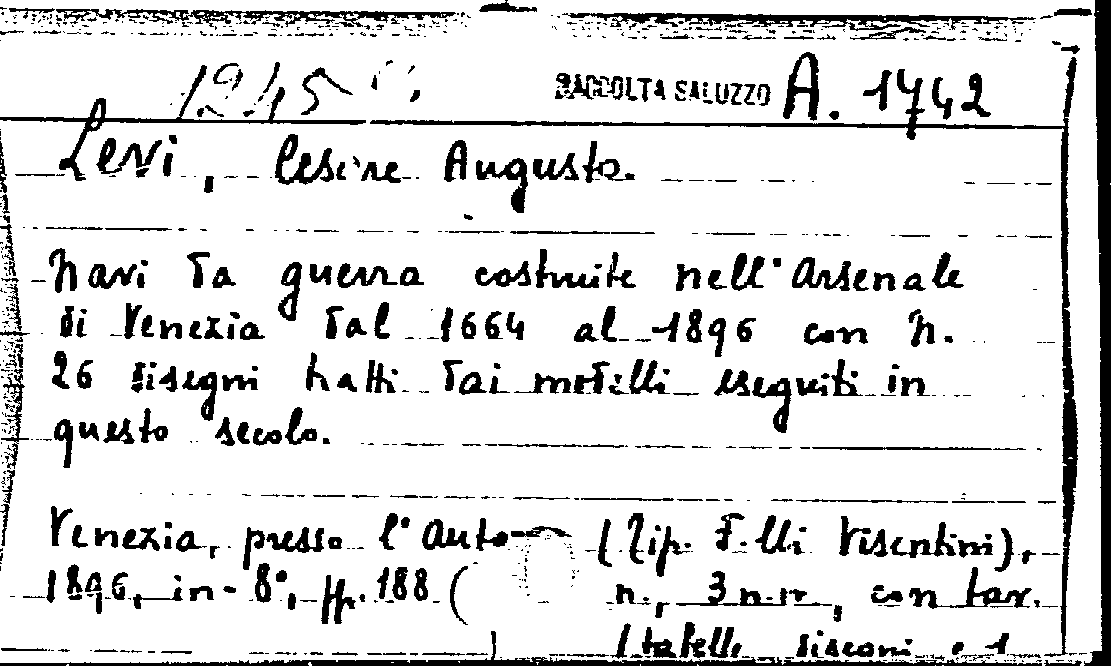 1245 RACCOLTA SALUZZO A. 1742
Levi, Cesare Augusto.
Navi da guerra costruite nell'Arsenale
di Venezia dal 1664 al 1896 con N.
26 disegni tratti dai modelli eseguiti in
questo secolo.
Venezia, presso l'Auto (Tip. F.lli Visentini),
1896, in-8°, pp. 188 ( n., 3 n.n., con tav.